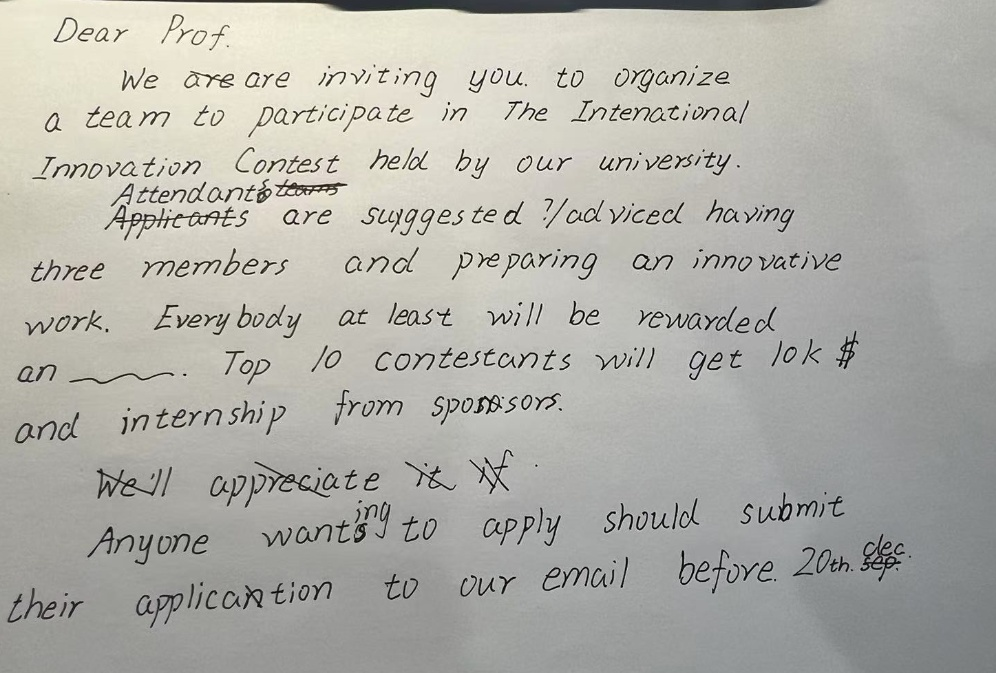 Dear Prof.
We are are inviting you. to organize
a team to participate in The Intenational
Innovation Contest held by our university.
Attendants teams
Applicants are suggested ?/adviced having
three members and preparing an innovative
work. Everybody at least will be rewarded
an ____. Top 10 contestants will get 10k $
and internship from sponsors.
We'll appreciate it if
Anyone wantsing to apply should submit
their application to our email before. 20th. sep. dec.